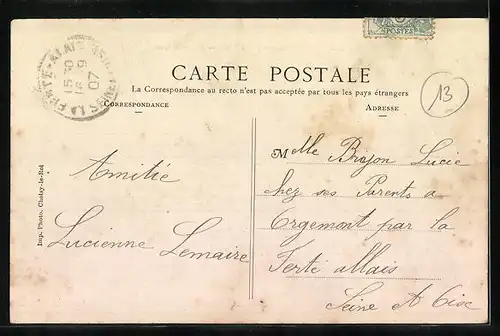 POSTES
LA FERTE-ALAIS
15 30
16 9
07
CARTE POSTALE
La Correspondance au recto n'est pas acceptée par tous les pays étrangers
CORRESPONDANCE
ADRESSE
13
Amitié
Lucienne Lemaire
Mlle Brajon Lucie
chez ses Parents a
Orgemont par la
Ferté allais
Seine et Oise
Imp. Photo. Choisy-le-Roi